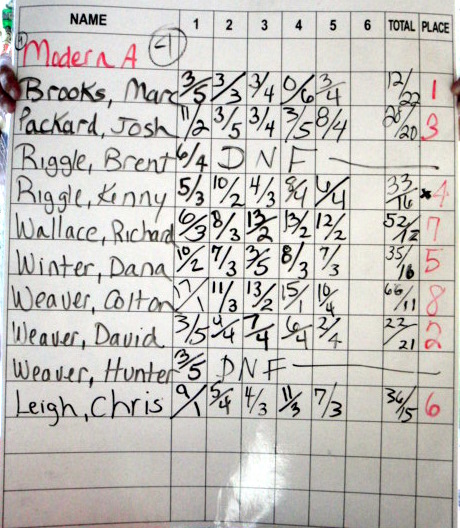 NAME 1 2 3 4 5 6 TOTAL PLACE
Modern A -1
Brooks, Marc 3/5 3/3 3/4 0/6 3/4 12/22 1
Packard, Josh 11/2 3/5 3/4 3/5 8/4 28/20 3
Riggle, Brent 6/4 DNF
Riggle, Kenny 5/3 10/2 4/3 8/4 33/16 4
Wallace, Richard 6/3 8/3 13/2 13/2 12/2 52/12 7
Winter, Dana 10/2 7/3 3/5 8/3 7/3 35/16 5
Weaver, Colton 17/1 11/3 13/2 15/1 10/4 66/11 8
Weaver, David 3/5 4/4 7/4 6/4 2/4 22/21 2
Weaver, Hunter 3/5 DNF
Leigh, Chris 9/1 5/4 4/3 11/3 7/3 36/15 6